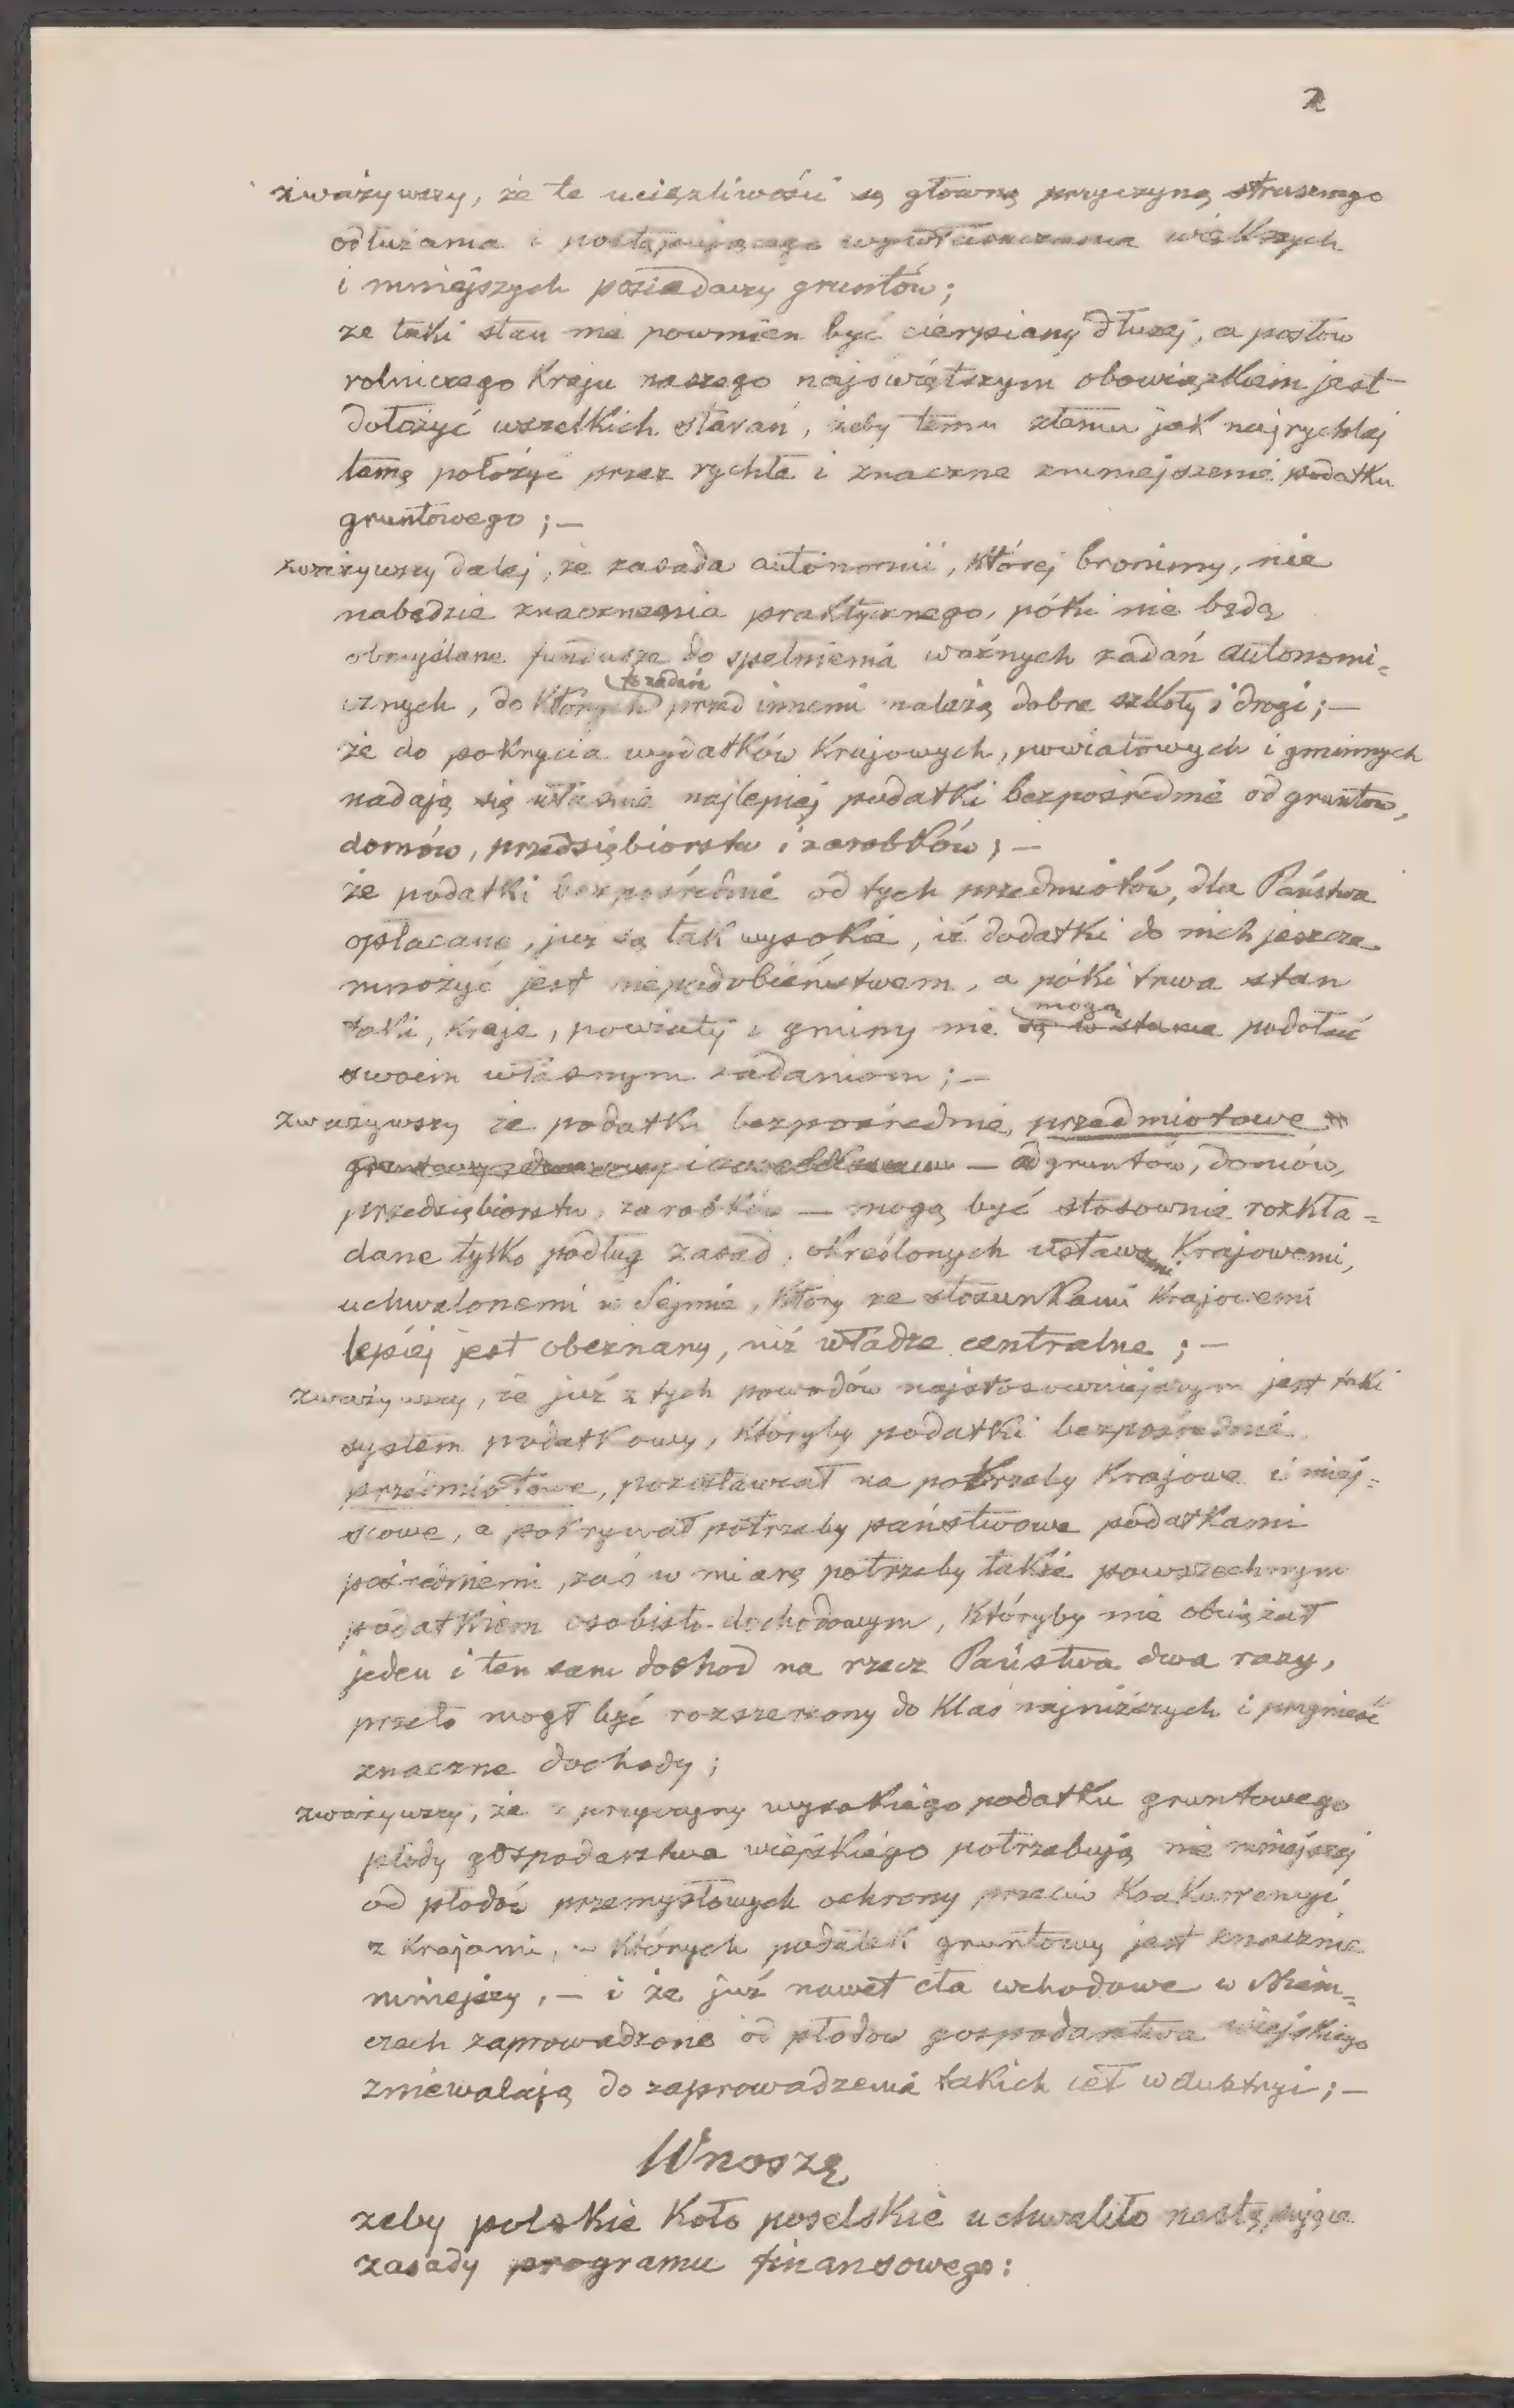 2
zważywszy, że te uciążliwości są główną przyczyną strasznego
odłużania i postępującego wywłaszczania większych
i mniejszych posiadaczy gruntów;
że taki stan nie powinien być cierpiany dłużej, a posłów
rolniczego Kraju naszego najświętszym obowiązkiem jest
dołożyć wszelkich starań, żeby temu złemu jak najrychlej
tamę położyć przez rychłe i znaczne zmniejszenie podatku
gruntowego; —
zważywszy dalej, że zasada autonomii, której bronimy, nie
nabędzie znaczenia praktycznego, póki nie będą
obmyślane fundusze do spełnienia ważnych zadań autonomi=
cznych, do których przed innemi należą dobre szkoły i drogi; —
że do pokrycia wydatków Krajowych, powiatowych i gminnych
nadają się właśnie najlepiej podatki bezpośrednie od gruntów,
domów, przedsiębiorstw i zarobków; —
że podatki bezpośrednie od tych przedmiotów, dla Państwa
opłacane, już są tak wysokie, iż dodatki do nich jeszcze
mnożyć jest niepodobieństwem, a póki trwa stan
taki, Kraje, powiaty i gminy nie mogą są w stanie podołać
swoim własnym zadaniom; —
zważywszy że podatki bezpośrednie, przedmiotowe
— od gruntów, domów,
przedsiębiorstw, zarobków — mogą być stosownie rozkła=
dane tylko podług zasad, określonych ustawami Krajowemi,
uchwalonemi w Sejmie, który ze stosunkami Krajowemi
lepiej jest obeznany, niż władze centralne; —
zważywszy, że już z tych powodów najstosowniejszym jest taki
system podatkowy, któryby podatki bezpośrednie
przedmiotowe, pozostawiał na potrzeby Krajowe i miej=
scowe, a pokrywał potrzeby państwowe podatkami
pośredniemi, zaś w miarę potrzeby także powszechnym
podatkiem osobisto-dochodowym, któryby nie obciążał
jeden i ten sam dochod na rzecz Państwa dwa razy,
przeto mogł być rozszerzony do klas najniższych i przynieść
znaczne dochody;
zważywszy, że z przyczyny wysokiego podatku gruntowego
płody gospodarstwa wiejskiego potrzebują nie mniejszej
od płodów przemysłowych ochrony przeciw Konkurrencyi
z Krajami, w których podatek gruntowy jest znacznie
mniejszy, — i że już nawet cła wchodowe w Niem=
czech zaprowadzone od płodow gospodarstwa wiejskiego
zniewalają do zaprowadzenia takich ceł w Austryi; —
Wnoszę
żeby polskie Koło poselskie uchwaliło następujące
zasady programu finansowego: